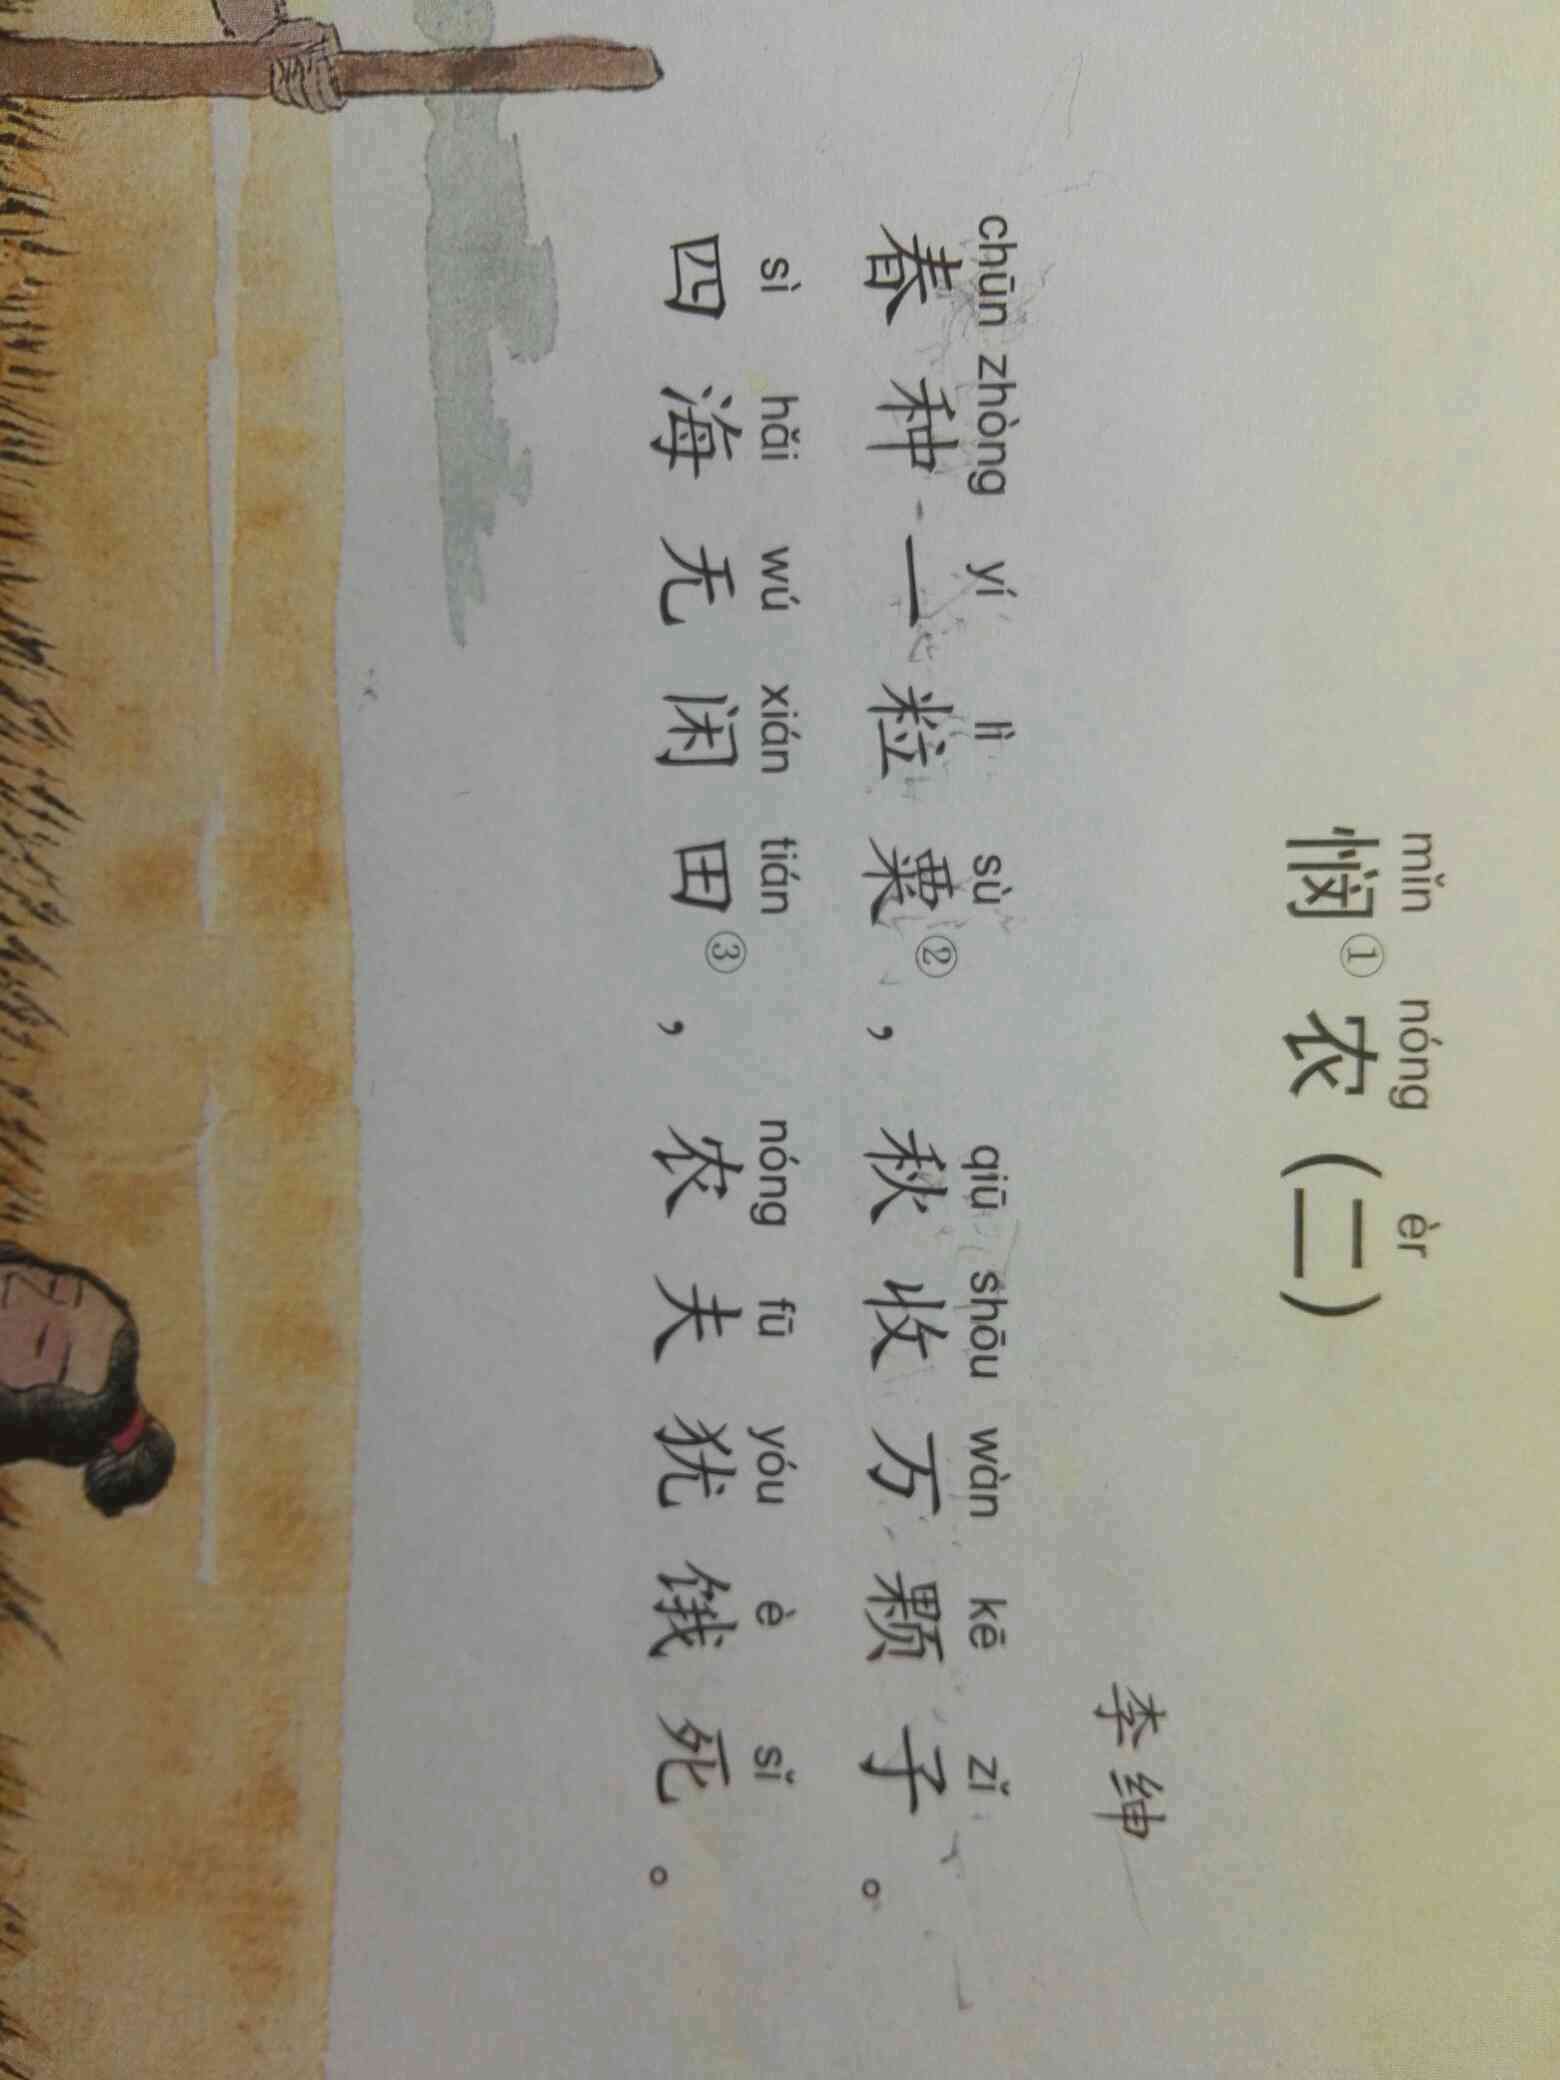 mǐn nóng èr
悯①农(二)
李绅
chūn zhòng yí lì sù qiū shōu wàn kē zǐ
春种一粒粟②，秋收万颗子。
sì hǎi wú xián tián nóng fū yóu è sǐ
四海无闲田③，农夫犹饿死。